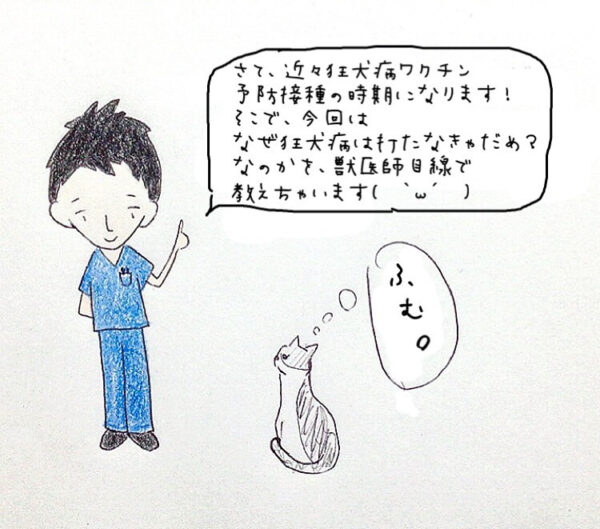 さて、近々狂犬病ワクチン
予防接種の時期になります!
そこで、今回は
なぜ狂犬病は打たなきゃだめ?
なのかを、獣医師目線で
教えちゃいます( `ω´ )
ふむ。